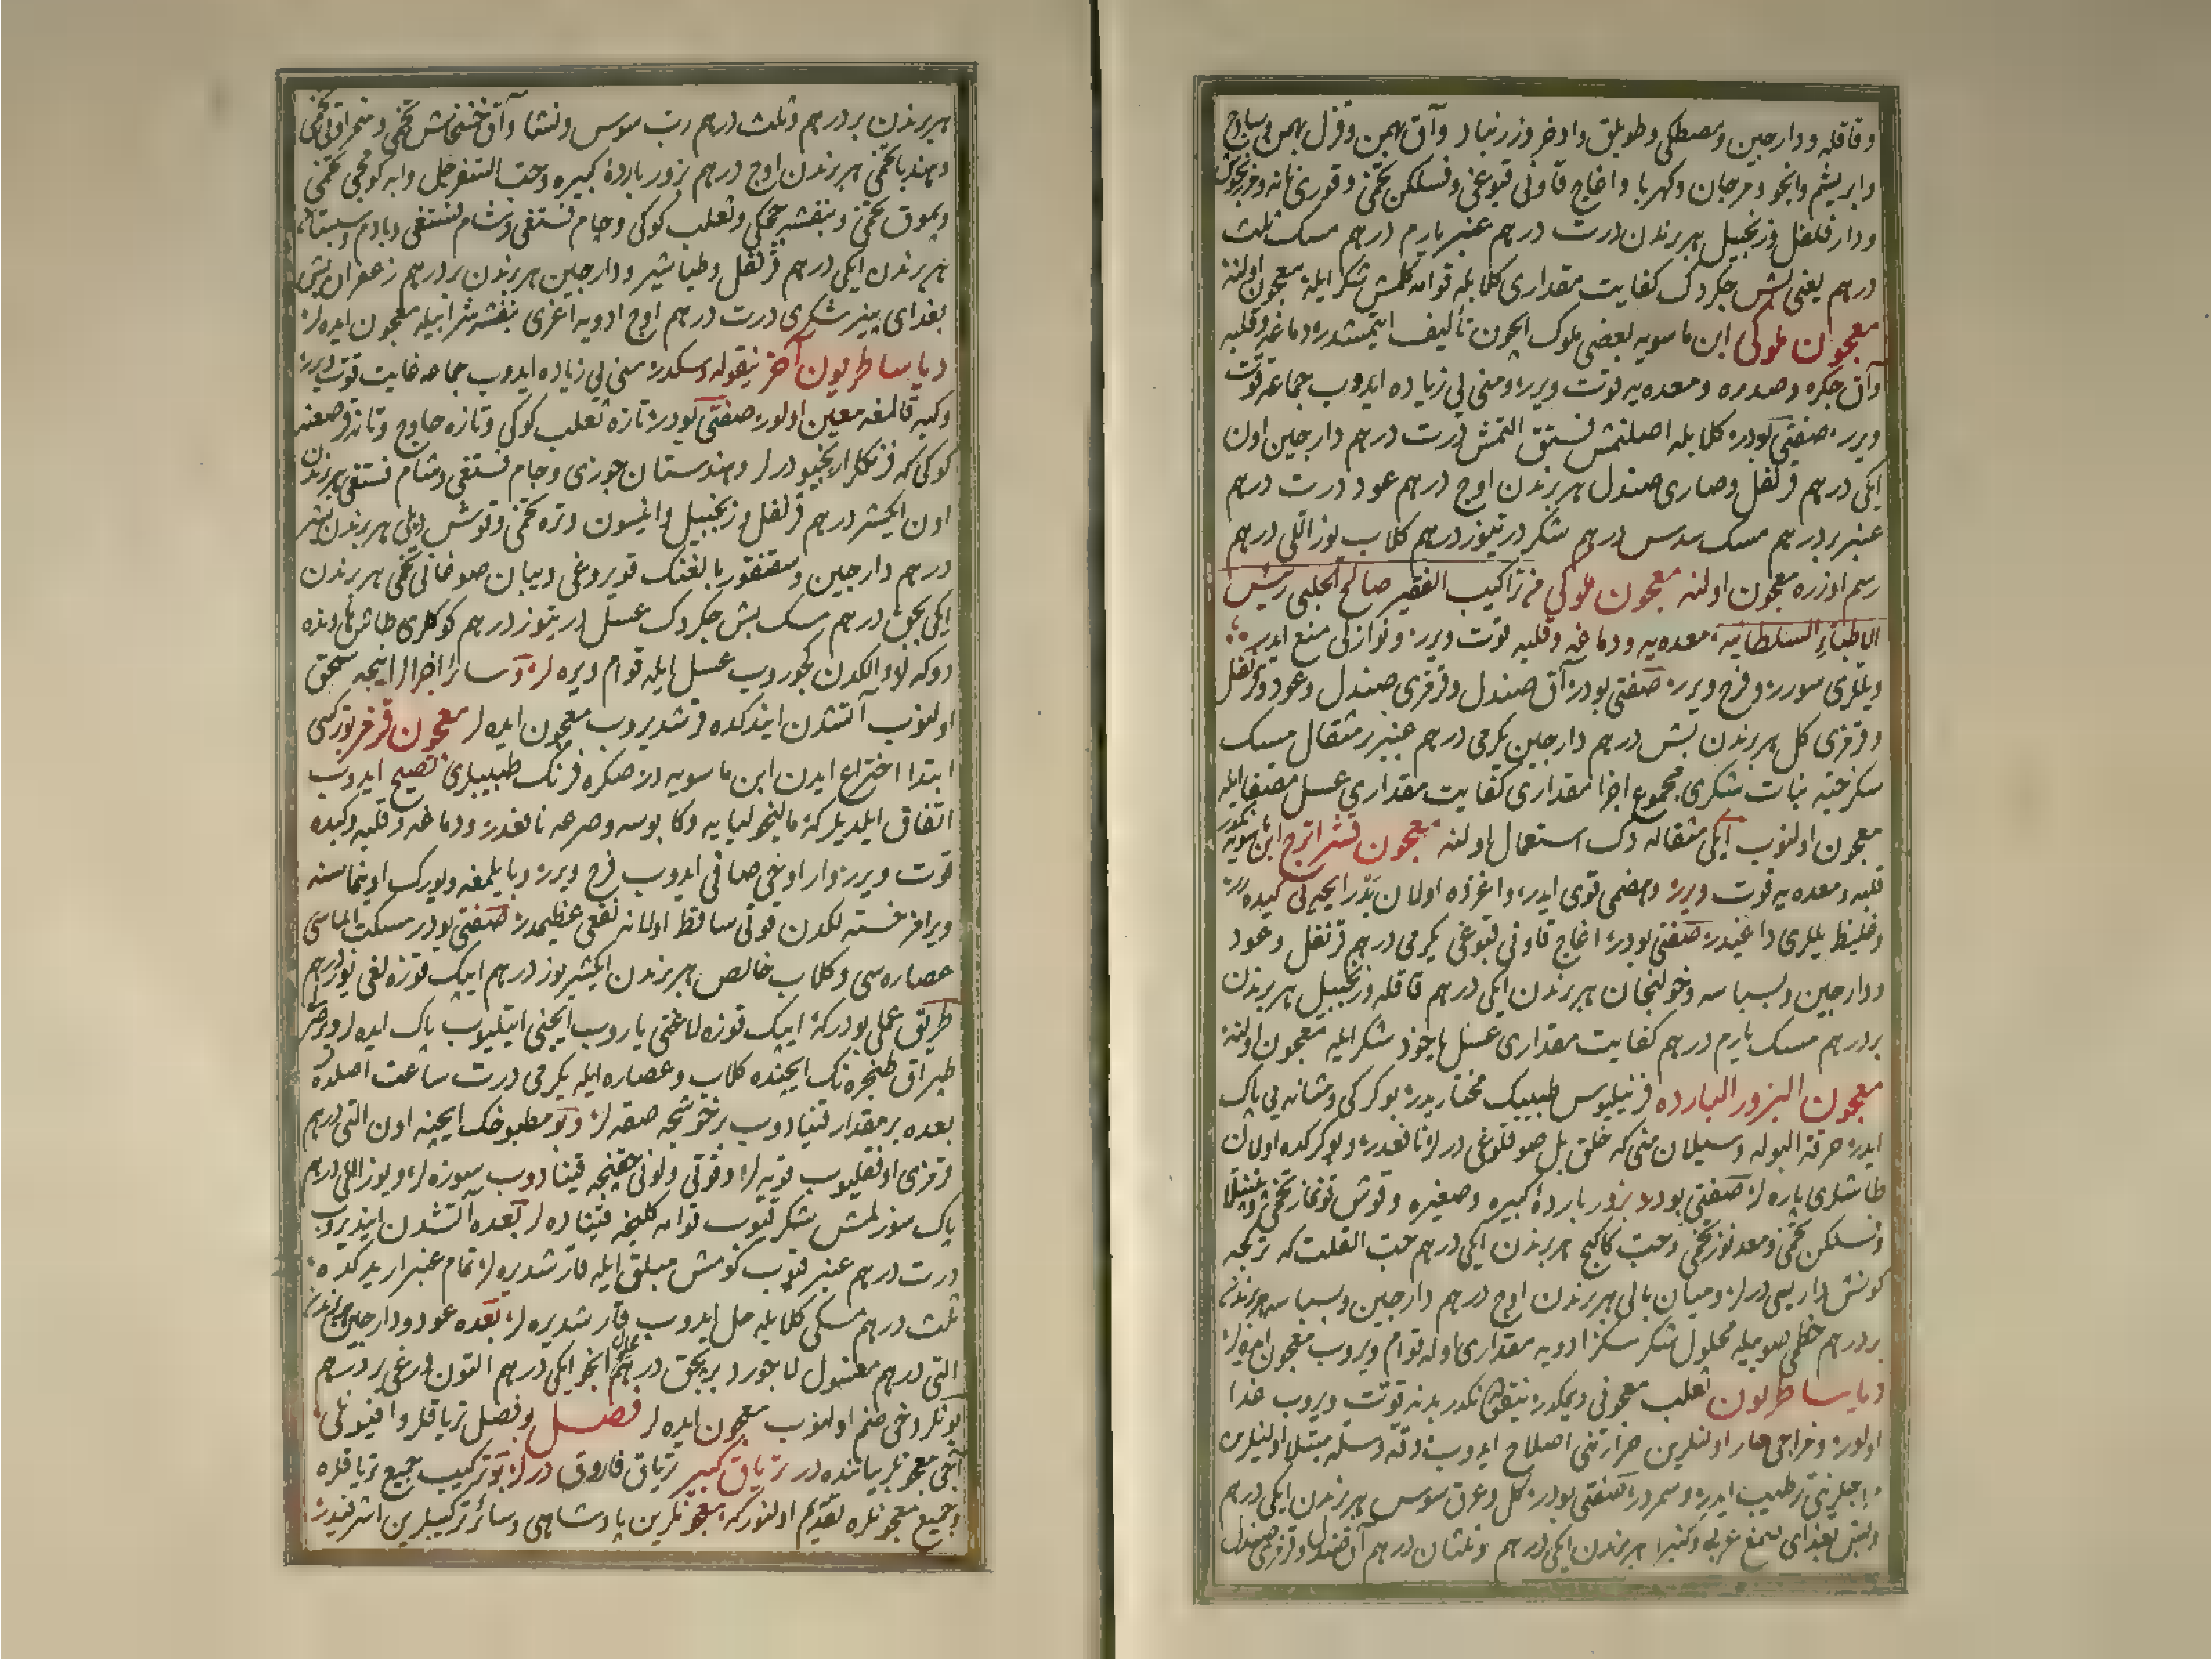 وقاقله ودارجين ومصطکی وطوبلق واذخر وزرنباد وآق بهمن وقزل بهمن
وابریشم وانجو ومرجان وکهربا واغاج قاونی قبوغی وفسلکن تخمی
ودارفلفل وزنجبیل هر برندن درت درهم عنبر یارم درهم مسک ثلث
درهم یعنی بش چکردک کفایت مقداری کلابله قوامه کلمش شکر ایله معجون اولنه
معجون ملوکی ابن ماسویه بعضی ملوک ایچون تألیف ایتمشدر دماغه وقلبه
وآق جکره وصدره ومعده یه قوت ویرر ومنی یی زیاده ایدوب جماعه قوت
ویرر صفتی بودر کلابله اصلنمش فستق التمش درت درهم دارجین اون
ایکی درهم قرنفل وصاری صندل هر برندن اوج درهم عود درت درهم
عنبر بر درهم مسک سدس درهم شکر درتیوز درهم کلاب یوز اللی درهم
رسم اوزره معجون اولنه معجون ملوکی من تراکیب الفقیر صالح الحلبی رئیس
الاطباء السلطانیه معده یه ودماغه وقلبه قوت ویرر ونوازلی منع ایدر
ویللری سورر وفرح ویرر صفتی بودر آق صندل وقرمزی صندل وعود وقرنفل
وقرمزی کل هر برندن بش درهم دارجین یکرمی درهم عنبر بر مثقال مسک
سکز حبه نبات شکری مجموع اجزا مقداری کفایت مقداری عسل مصفا ایله
معجون اولنوب ایکی مثقاله دک استعمال اولنه معجون قشر اترج ابن ماسویه
قلبه ومعده یه قوت ویرر وهضمی قوی ایدر واغزده اولان
وغلیظ یللری داغیدر صفتی بودر اغاج قاونی قبوغی یکرمی درهم قرنفل وعود
ودارجین وبسباسه وخولنجان هر برندن ایکی درهم قاقله وزنجبیل هر برندن
بر درهم مسک یارم درهم کفایت مقداری عسل یاخوذ شکر ایله معجون اولنه
معجون البزور البارده فرنیلیوس طبیبک مختاریدر بوکرکی ومثانه یی پاک
ایدر حرقة البوله وسیلان منی که خلق بل صوقلوغی درلر نافعدر وبوکرکده اولان
طاشلری پاره لر صفتی بودر بزور بارده کبیره وصغیره وقوش قونماز تخمی
وفسلکن تخمی ومعدنوز تخمی وحب کاکنج هر برندن ایکی درهم حب القلت که ترکجه
کونش داریسی درلر ومیان بالی هر برندن اوج درهم دارجین وبسباسه هر برندن
بر درهم خطمی صوییله محلول شکر سکز ادویه مقداری اوله قوام ویروب معجون ایده لر
دیاساطریون ثعلب معجونی دیمکدر بدنه قوت ویروب غدا
اولور ومزاجی حار اولنلرین حرارتنی اصلاح ایدوب دقه وسله مبتلا اولنلرین
مزاجلرینی ترطیب ایدر وسمردر صفتی بودر کل وعرق سوس هر برندن ایکی درهم
صمغ عربی وکثیرا هر برندن ایکی درهم وثلثان درهم آق صندل وقرمزی صندل
هر برندن بر درهم وثلث درهم رب سوس ونشا وآق خشخاش تخمی
وهندبا تخمی هر برندن اوج درهم بزور باردۀ کبیره وحب السفرجل
وپموق تخمی وبنفشه چچکی وثعلب کوکی وچام فستقی وشام فستقی وبادم وسبستان
هر برندن ایکی درهم قرنفل وطباشیر ودارجین هر برندن بر درهم زعفران بش
بغدای پینر شکری درت درهم اوج ادویه اغری بنفشه شرابیله معجون ایده لر
دیاساطریون آخر نیقوله وسکدر منی یی زیاده ایدوب جماعه غایت قوت ویرر
وکبه قالمغه معین اولور صفتی بودر تازه ثعلب کوکی وتازه حاوج
کوکی که فرنکلر ارنجیو درلر وهندستان جوزی وچام فستقی وشام فستقی هر برندن
اون ایکیشر درهم قرنفل وزنجبیل وانیسون وتره تخمی وقوش دیلی هر برندن بشر
درهم دارجین وسقنقور بالغنک قویروغی ویبان صوغانی تخمی هر برندن
ایکی بچق درهم مسک بش چکردک عسل درتیوز درهم کوکلری طاش هاونده
دوکه لر والکدن کچوروب عسل ایله قوام ویره لر وسائر اجزالر اینجه سحق
اولنوب آتشدن ایندکده قرشدیروب معجون ایده لر معجون قرمز بو ترکیبی
ابتدا اختراع ایدن ابن ماسویه در صکره فرنک طبیبلری تصحیح ایدوب
اتفاق ایلدیلر که مالیخولیایه وکابوسه وصرعه نافعدر ودماغه وقلبه وکبده
قوت ویرر وارواحی صافی ایدوب فرح ویرر وبایلمغه ویورک اوینماسنه
ویراز خسته لکدن قوتی ساقط اولانه نفعی عظیمدر صفتی بودر مسکت الماسی
عصاره سی وکلاب خالص هر برندن ایکیشر یوز درهم ایپک قوزه لغی یوز درهم
طریق عملی بودر که ایپک قوزه لاغنی یاروب ایچنی ایتلیوب پاک ایده لر
طپراق طنجره نک ایچنده کلاب وعصاره ایله یکرمی درت ساعت اصلده لر
بعده بر مقدار قینادوب بر خوشجه صقه لر وبو مطبوخک ایچنه اون التی درهم
قرمزی اوفقلیوب قویه لر وقوتی ولونی چقنجه قینادوب سوزه لر ویوز اللی درهم
پاک سوزلمش شکر قیوب قوامه کلنجه قینادلر بعده آتشدن ایندیروب
درت درهم عنبر قیوب کومش مبلق ایله قارشدیره لر تمام عنبر اریدکده
ثلث درهم مسکی کلابله حل ایدوب قارشدیره لر بعده عود ودارجین هر برندن
التی درهم مغسول لاجورد بر بچق درهم انجو ایکی درهم التون ورغی بر درهم
بونلر دخی ضم اولنوب معجون ایده لر فصل بو فصل تریاقلر وافیونلی
آجی معجونلر بیاننده در تریاق کبیر تریاق فاروق درلر بو ترکیب جمیع تریاقلره
وجمیع معجونلره تقدیم اولنور که معجونلرین پادشاهی وسائر ترکیبلرین اشرفیدر